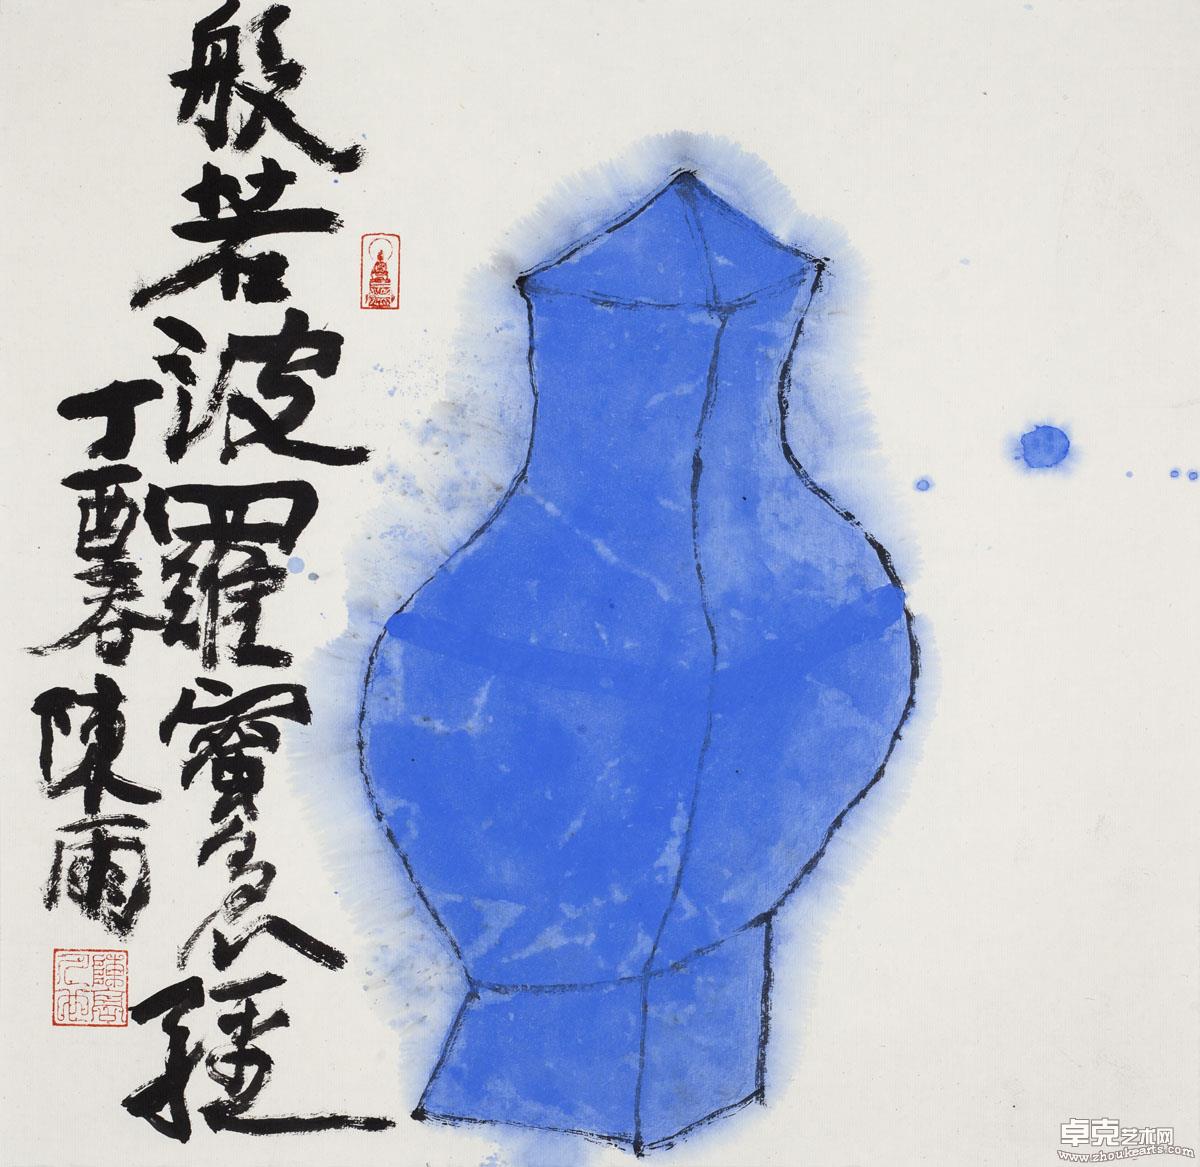 般若波羅蜜多心經
丁酉春陳雨
卓克艺术网
www.zhoukearts.com